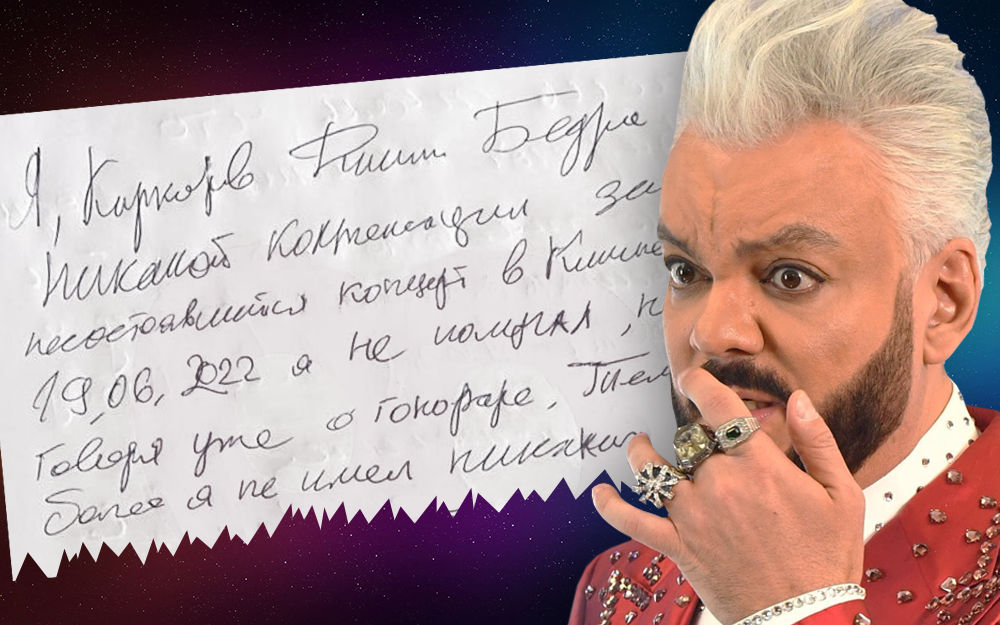 Я, Киркоров Филип Бедро
никакой компенсации за
несостоявшийся концерт в Кишине
19,06,2022 я не получал, н
говоря уже о гонораре, Тем
более я не имел никаких